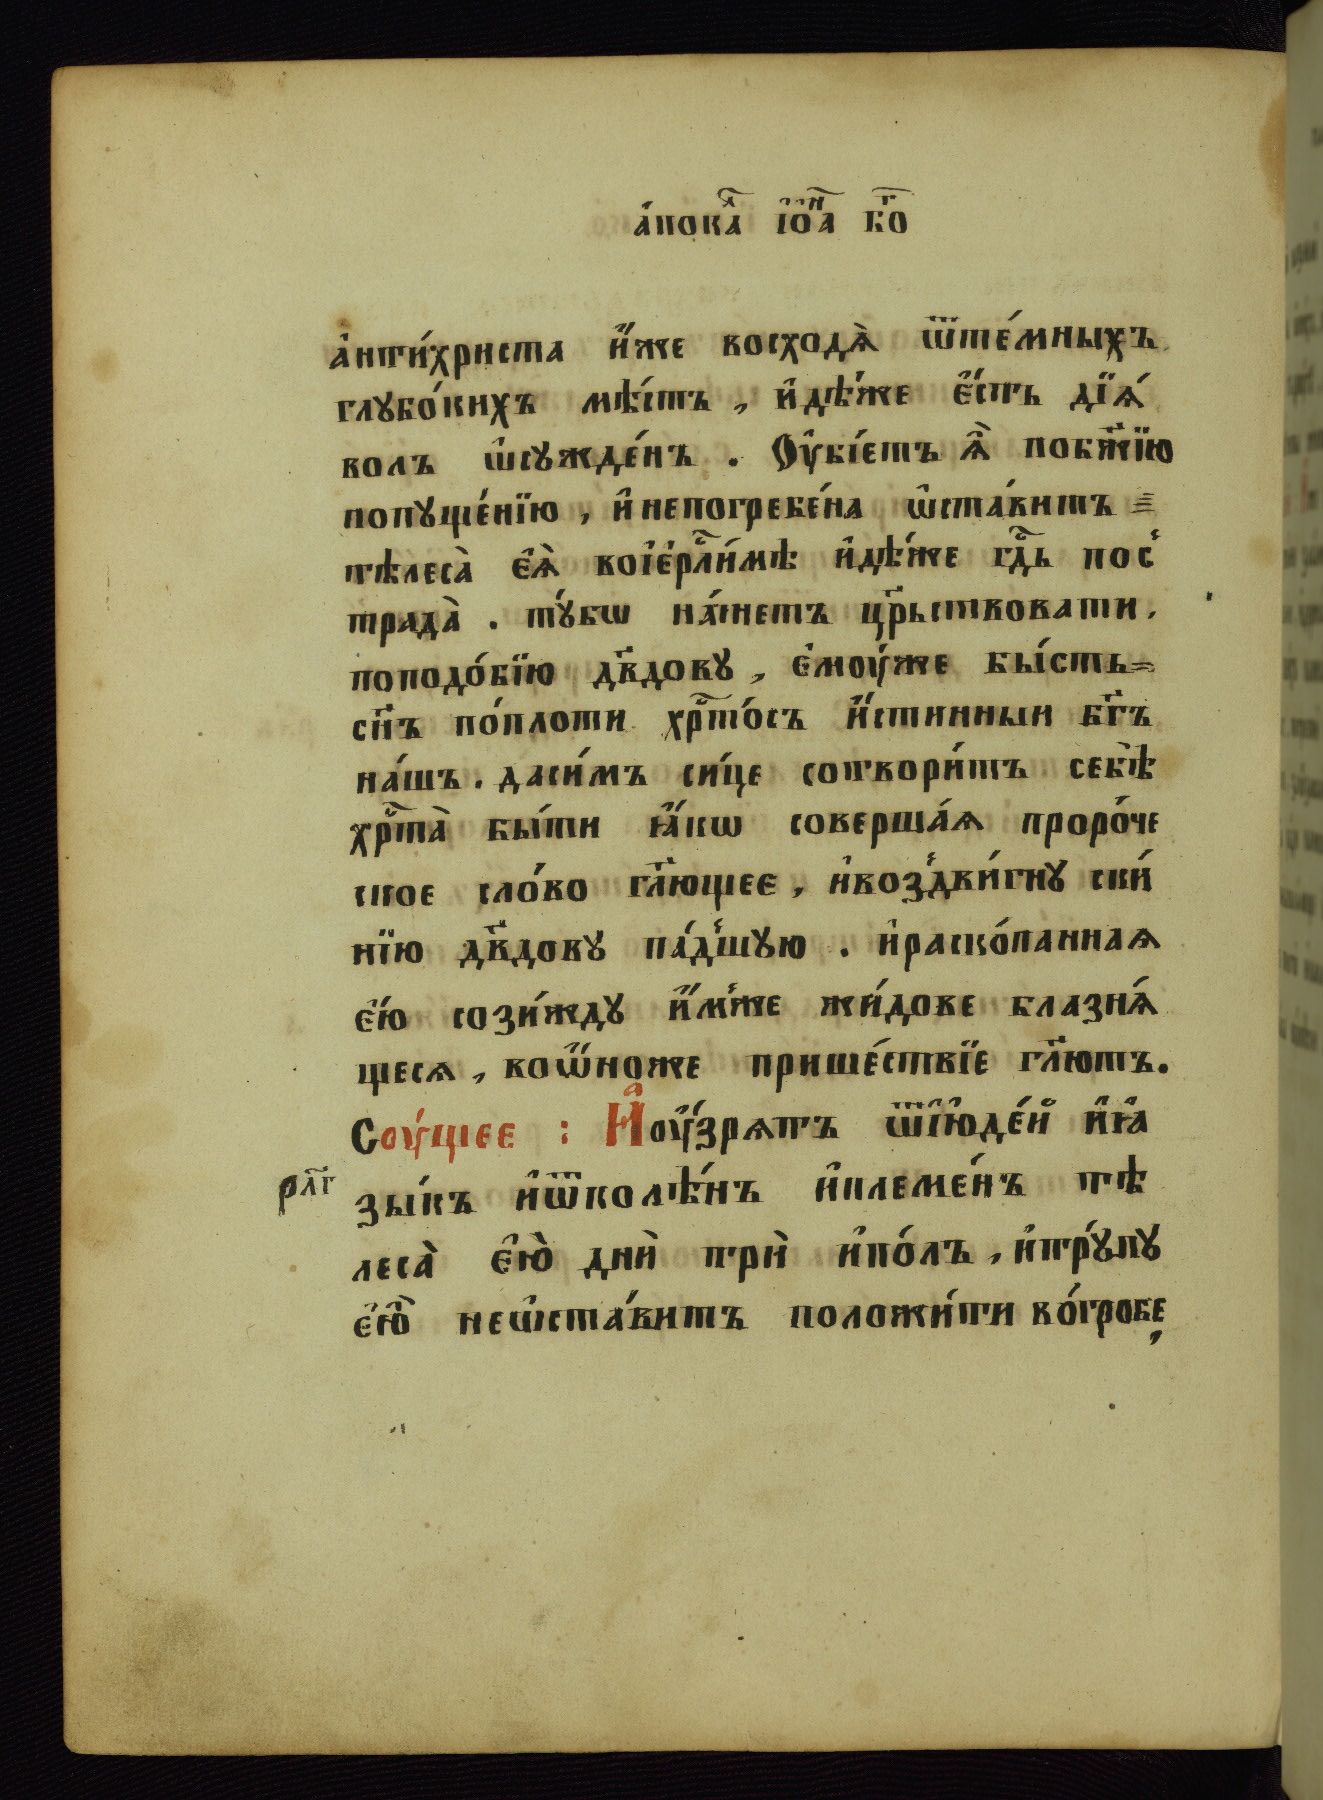 а҆пока́л҇ і҆ѡ҆н҇а бг҇о
а҆нти́христа и҆́же восходѧ̀ ѿте́мныхъ
глубо́кихъ мѣ́стъ, и҆дѣ́же є҆́сть дїѧ́
волъ ѡ҆сужде́нъ. Оу҆бїе́тъ ѧ҆̀ побж҃їю
попуще́нїю, и҆непогребе́на ѡ҆ста́витъ
тѣлеса̀ є҆ѧ̀ воі҆є҆рⷭ҇ли́мѣ и҆дѣ́же гдⷭ҇ь пос
трада̀. ту́бѡ на́чнетъ црⷭ҇ьствовати.
поподо́бїю дв҃дову, є҆моу́же бы́сть
сн҃ъ по́плоти хрⷭ҇то́съ и҆́стинныи бг҃ъ
на́шъ. даси́мъ си́це сотвори́тъ себѣ̀
хрⷭ҇та̀ бы́ти ꙗ҆́кѡ соверша́ѧ проро́че
ское сло́во гл҃ющее, и҆воздви́гну ски́
нїю дв҃дову па́дшую. и҆раско́панная
є҆́ю сози́жду и҆́мже жи́дове блазнѧ́
щесѧ, воѿно́же прише́ствїе гл҃ютъ.
Соу́щее : И҆оу҆́зрѧтъ ѿі҆юде́й и҆ꙗ҆
рл҃г
зы́къ и҆ѿколѣ́нъ и҆племе́нъ тѣ
леса̀ є҆ю̀ днѝ трѝ и҆по́лъ, и҆тру́пу
є҆ю̀ неѡ҆ста́витъ положи́ти во́гробе,